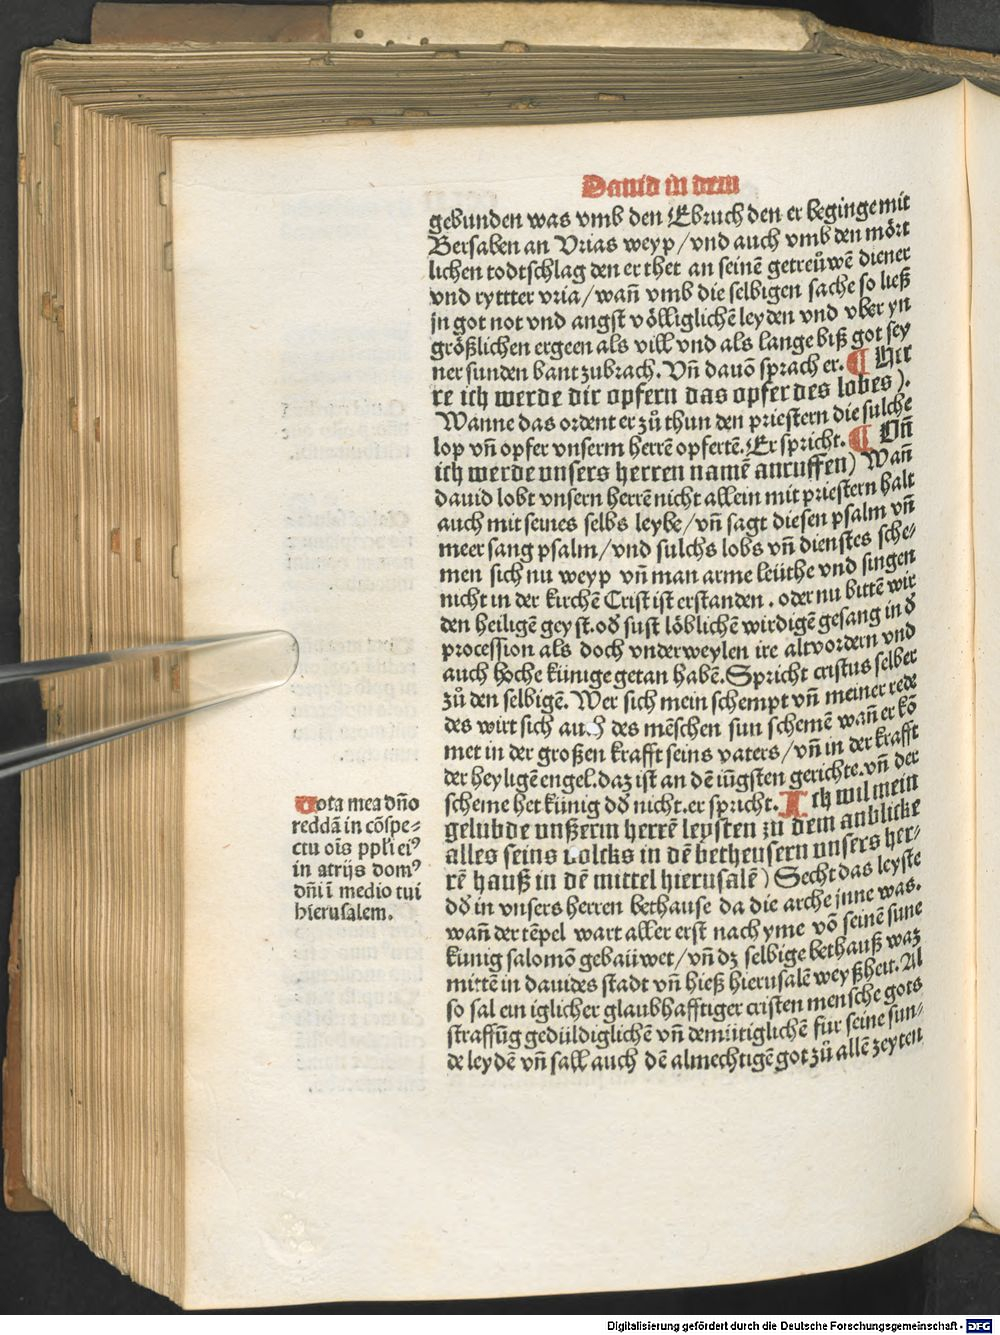 Dauid in dem
gebunden was vmb den Ebruch den er beginge mit
Bersaben an Vrias weyp/vnd auch vmb den mört
lichen todtschlag den er thet an seinē getreüwē diener
vnd ryttter vria/wañ vmb die selbigen sache so ließ
jn got not vnd angst völliglichē leyden vnd vber yn
größlichen ergeen als vill vnd als lange biß got sey
ner sunden bant zubrach. Vñ dauō sprach er. ¶ Her
re ich werde dir opfern das opfer des lobes).
Wanne das ordent er zů thun den priestern die sulche
lop vñ opfer vnserm herrē opfertē. Er spricht. ¶ Vñ
ich werde vnsers herren namē anruffen) Wañ
dauid lobt vnsern herrē nicht allein mit priestern halt
auch mit seines selbs leybe/vñ sagt diesen psalm vñ
meer sang psalm/vnd sulchs lobs vñ dienstes sche⸗
men sich nu weyp vñ man arme leüthe vnd singen
nicht in der kirchē Crist ist erstanden. oder nu bittē wir
den heiligē geyst. od̄ sust löblichē wirdigē gesang in d̄
procession als doch vnderweylen ire altvordern vnd
auch hoche künige getan habē. Spricht cristus selber
zů den selbigē. Wer sich mein schempt vñ meiner rede
des wirt sich auch des mēschen sun schemē wañ er kō
met in der großen krafft seins vaters/vñ in der krafft
der heyligē engel. daz ist an dē iūgsten gerichte. vñ der
scheme het künig dd̄ nicht. er spricht. Ich wil mein
gelubde vnßerm herrē leysten zu dem anblicke
alles seins volcks in dē betheusern vnsers her⸗
rē hauß in dē mittel hierusalē) Secht das leyste
dd̄ in vnsers herren bethause da die arche jnne was.
wañ der tēpel wart aller erst nach yme vō seinē sune
künig salomō gebaüwet/vñ dz selbige bethauß waz
mittē in dauides stadt vñ hieß hierusalē weyßheit. Al
so sal ein iglicher glaubhafftiger cristen mensche gots
straffūg gedüldiglichē vñ demütiglichē für seine sun⸗
de leydē vñ sall auch dē almechtigē got zů allē zeyten
Vota mea dño
reddā in cōspe⸗
ctu oīs ppl'i ei⁹
in atrijs dom⁹
dñi ī medio tui
hierusalem.
Digitalisierung gefördert durch die Deutsche Forschungsgemeinschaft - DFG